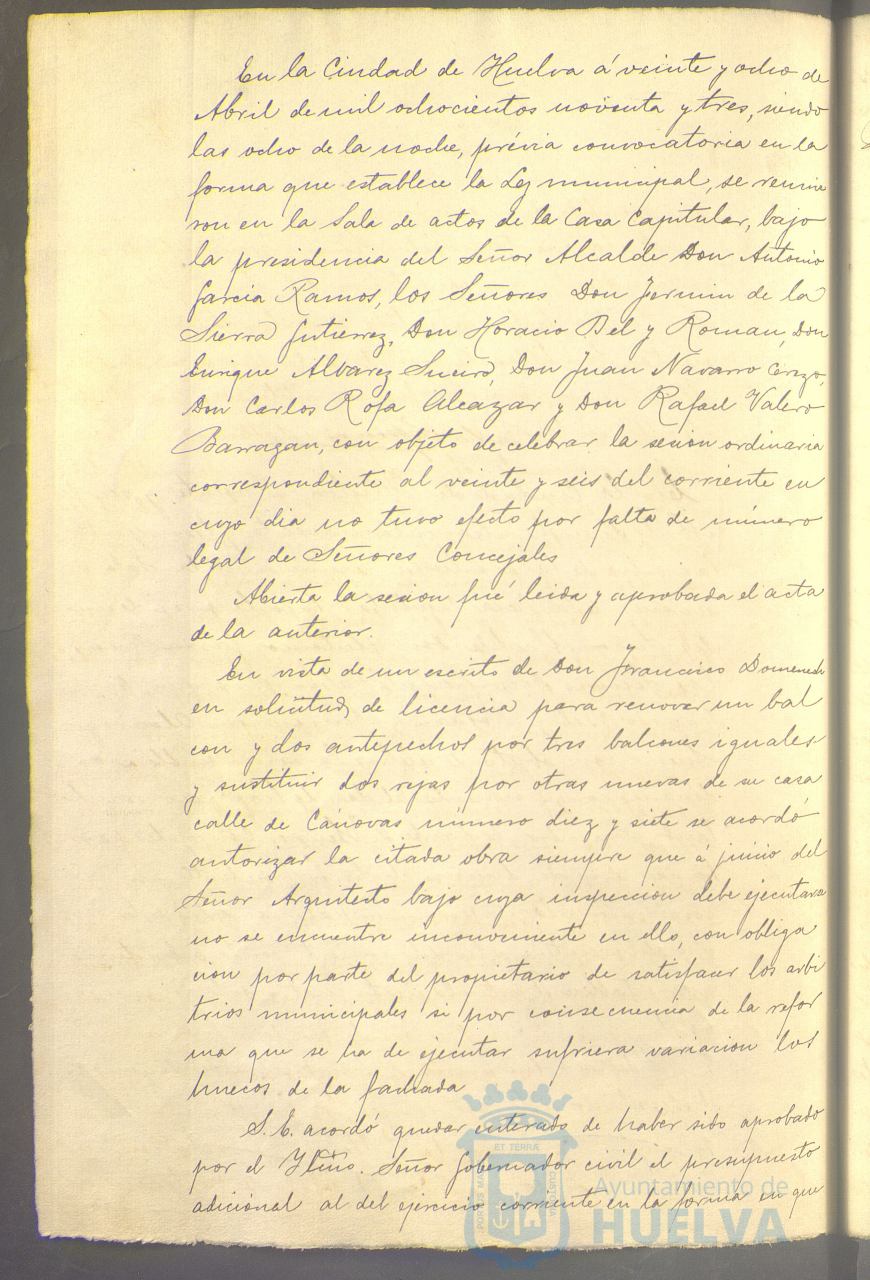 En la Ciudad de Huelva á veinte y ocho de
Abril de mil ochocientos noventa y tres, siendo
las ocho de la noche, prévia convocatoria en la
forma que establece la Ley municipal, se reunie
ron en la Sala de actos de la Casa Capitular, bajo
la presidencia del Señor Alcalde Don Antonio
Garcia Ramos, los Señores Don Fermin de la
Sierra Gutierrez, Don Horacio Bel y Roman, Don
Enrique Alvarez Sueiro, Don Juan Navarro Cerezo,
Don Carlos Rofa Alcazar y Don Rafael Valero
Barragan, con objeto de celebrar la sesion ordinaria
correspondiente al veinte y seis del corriente en
cuyo dia no tuvo efecto por falta de número
legal de Señores Concejales
Abierta la sesion fué leida y aprobada el acta
de la anterior.
En vista de un escrito de Don Francisco Domenech
en solicitud de licencia para renovar un bal
con y dos antepechos por tres balcones iguales
y sustituir dos rejas por otras nuevas de su casa
calle de Cánovas número diez y siete se acordó
autorizar la citada obra siempre que á juicio del
Señor Arquitecto bajo cuya inspeccion debe ejecutarse
no se encuentre inconveniente en ello, con obliga
cion por parte del propietario de satisfacer los arbi
trios municipales si por consecuencia de la refor
ma que se ha de ejecutar sufriera variacion los
huecos de la fachada
S. E. acordó quedar enterado de haber sido aprobado
por el Yltmo. Señor Gobernador civil el presupuesto
adicional al del ejercicio corriente en la forma en que
ET TERRÆ
Ayuntamiento de
HUELVA